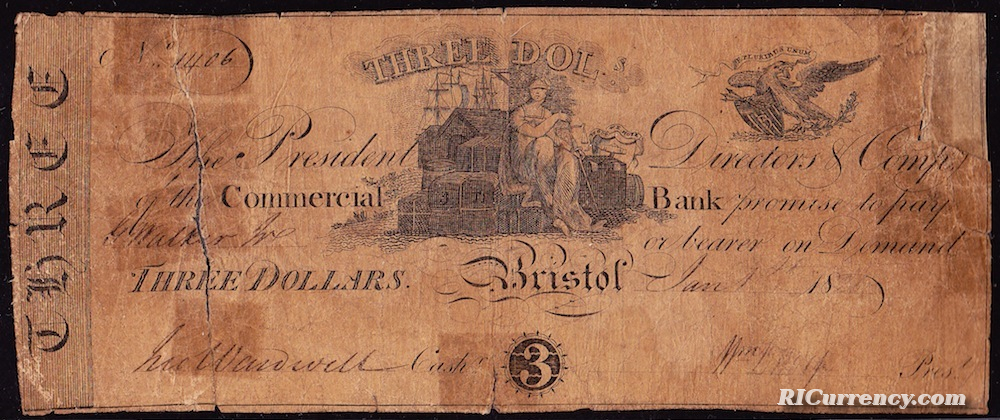 THREE
No. 1406
THREE DOL.s
E PLURIBUS UNUM
The President Directors & Comp.y
of the Commercial Bank promise to pay
C Walker Jr or bearer on Demand
THREE DOLLARS. Bristol Jan 18
Jno Wardwell Cash.r 3 Pres.t
RICurrency.com